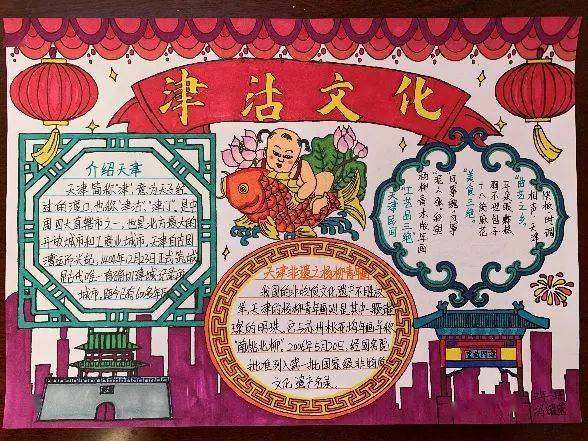 津沽文化
介绍天津
天津简称"津",意为天子经
过的渡口,也称"津沽","津门",是中
国四大直辖市之一,也是北方最大的
开放城市和工商业城市,天津自古因
漕运而兴起,1404年12月23日正式筑城
是古代唯一有确切建城记录的
城市,距今已有600多年历
天津非遗之杨柳青
我国的非物质文化遗产不胜枚
举,天津的杨柳青年画则是其中一颗璀
璨的明珠,它与苏州桃花坞年画并称
"南桃北柳",2006年5月20日,经国务院
批准列入第一批国家级非物质
文化遗产名录。
快板 时调
相声 天津
"曲艺之乡"
耳朵眼炸糕
狗不理包子
十八街麻花
"美食三绝"
风筝魏风筝
泥人张彩塑
杨柳青木版年画
"工艺品三绝"
天津民间